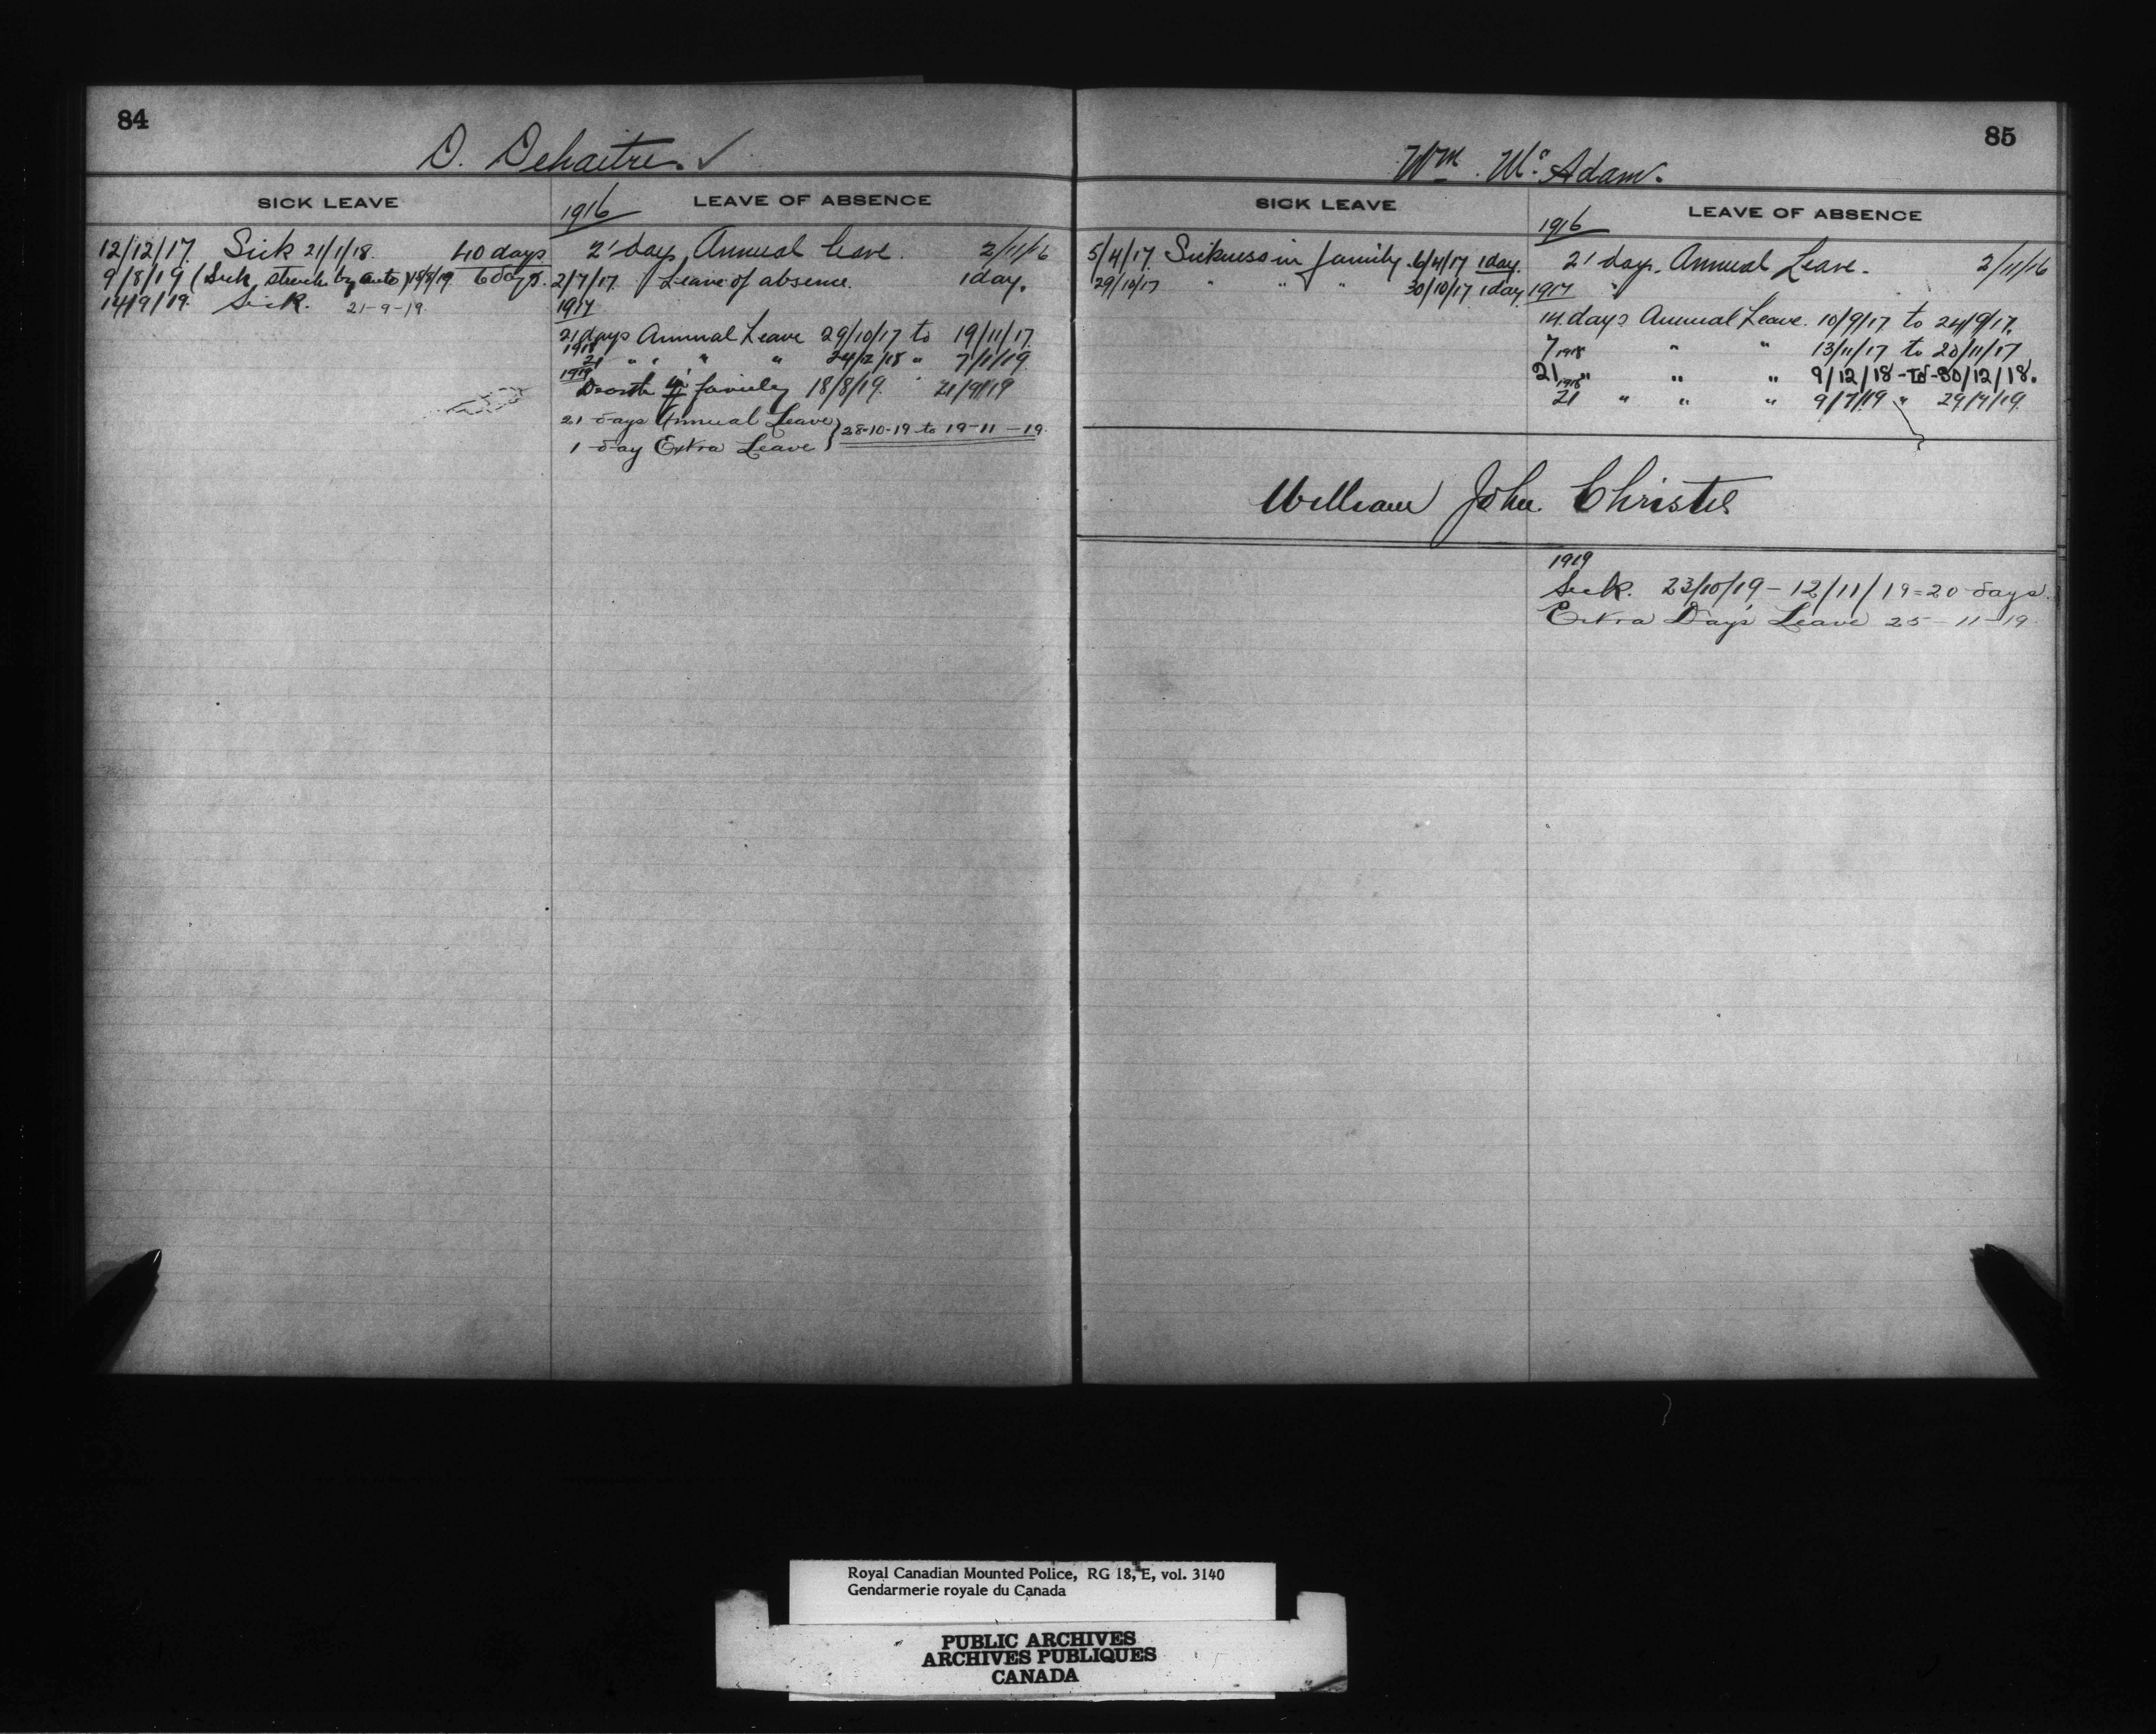 84
D. Dehaitre. ✓
SICK LEAVE
12/12/17. Sick 21/1/18. 40 days
9/8/19 (Sick struck by auto) 15/8/19 6 days.
14/9/19. Sick. 21-9-19
LEAVE OF ABSENCE
1916
21 days Annual leave. 2/11/16
2/7/17. Leave of absence. 1 day.
1917
21 days Annual Leave 29/10/17 to 19/11/17.
1918
21 " " " " 24/12/18 " 7/1/19.
1919
Death in family 18/8/19. 21/9/19
21 days Annual Leave } 28-10-19 to 19-11-19.
1 day Extra Leave }
85
Wm. Mc. Adam.
SICK LEAVE
5/4/17. Sickness in family. 6/4/17 1 day.
29/10/17 " " " 30/10/17 1 day.
LEAVE OF ABSENCE
1916
21 days. Annual Leave. 2/11/16
1917
14 days Annual Leave. 10/9/17 to 24/9/17.
7 " " 13/11/17 to 20/11/17
1918
21 " " " 9/12/18 - to - 30/12/18.
1918
21 " " " 9/7/19 " 29/7/19.
William John Christie
1919
Sick. 23/10/19 - 12/11/19 = 20 days.
Extra Day's Leave 25-11-19
Royal Canadian Mounted Police, RG 18, E, vol. 3140
Gendarmerie royale du Canada
PUBLIC ARCHIVES
ARCHIVES PUBLIQUES
CANADA